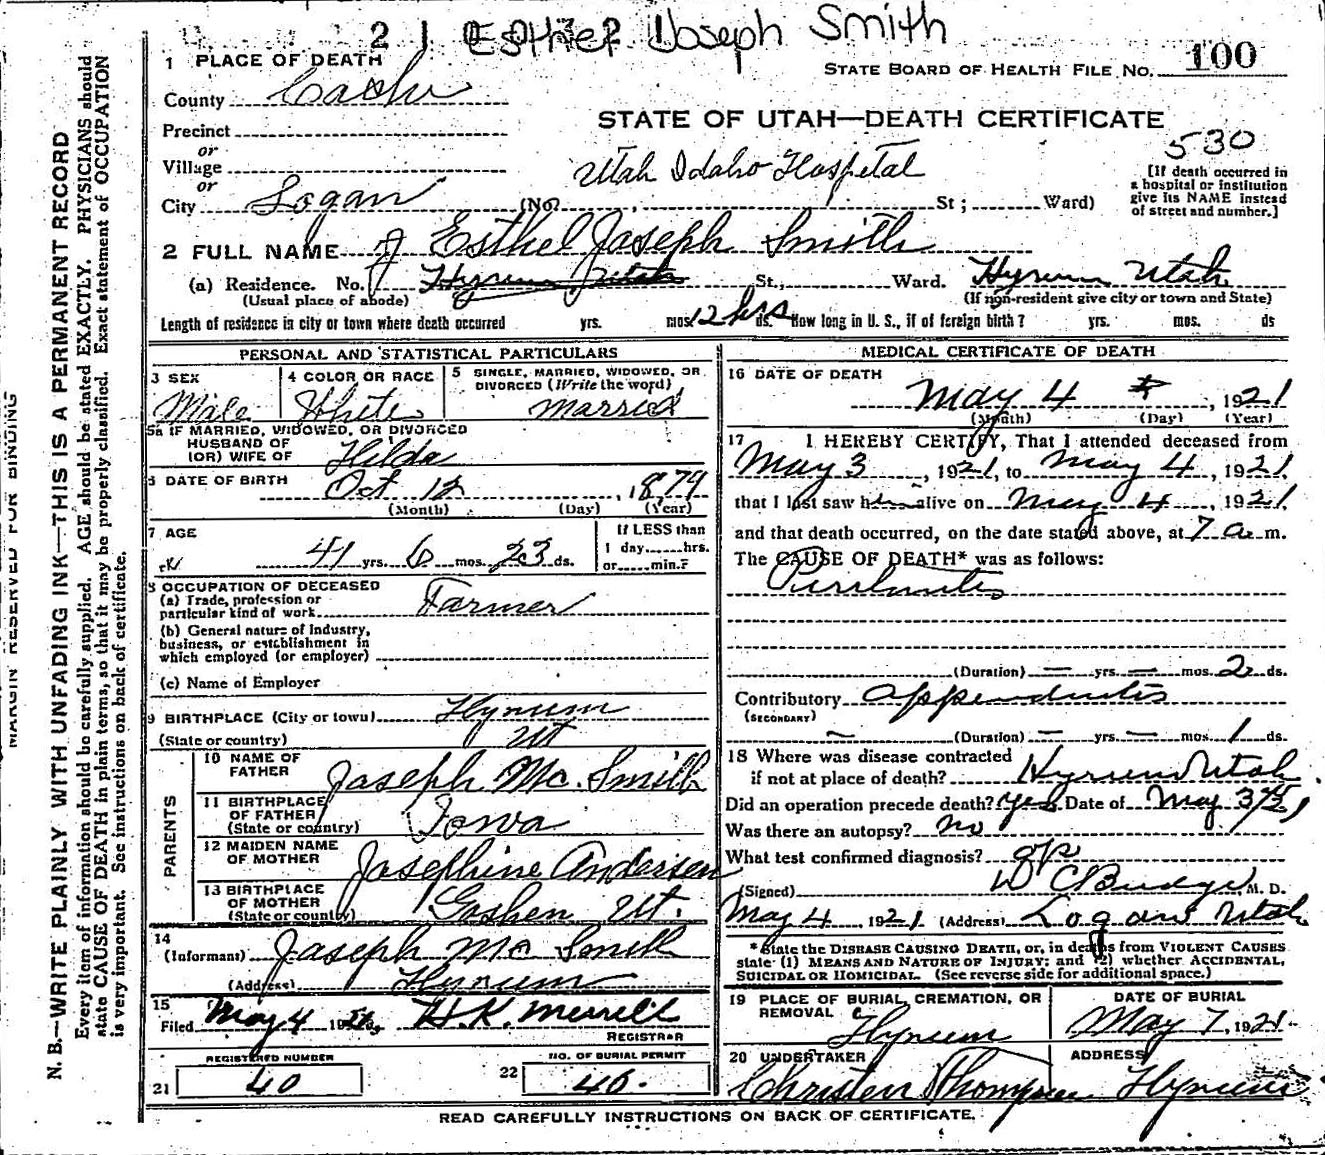 Esther Joseph Smith
1 PLACE OF DEATH
STATE BOARD OF HEALTH FILE No. 100
County Cache
STATE OF UTAH—DEATH CERTIFICATE
Precinct
530
or
Village
Utah Idaho Hospital
[If death occurred in a hospital or institution give its NAME instead of street and number.]
or
City Logan (No. St; Ward)
2 FULL NAME Esthel Joseph Smith
(a) Residence. No. Hyrum Utah St., Ward. Hyrum Utah
(Usual place of abode) (If non-resident give city or town and State)
Length of residence in city or town where death occurred yrs. mos. 12 hrs ds. How long in U. S., if of foreign birth? yrs. mos. ds
PERSONAL AND STATISTICAL PARTICULARS
3 SEX 4 COLOR OR RACE 5 SINGLE, MARRIED, WIDOWED, OR DIVORCED (Write the word)
Male White married
5a IF MARRIED, WIDOWED, OR DIVORCED
HUSBAND OF
(OR) WIFE OF Hilda
6 DATE OF BIRTH Oct 12, 1879
(Month) (Day) (Year)
7 AGE If LESS than
41 yrs. 6 mos. 23 ds. 1 day hrs.
or min.?
8 OCCUPATION OF DECEASED
(a) Trade, profession or
particular kind of work Farmer
(b) General nature of Industry,
business, or establishment in
which employed (or employer)
(c) Name of Employer
9 BIRTHPLACE (City or town) Hyrum
(State or country) Ut
PARENTS
10 NAME OF
FATHER Joseph Mc. Smith
11 BIRTHPLACE
OF FATHER
(State or country) Iowa
12 MAIDEN NAME
OF MOTHER Josephine Andersen
13 BIRTHPLACE
OF MOTHER
(State or country) Goshen Ut.
14
(Informant) Joseph Mc Smith
(Address) Hyrum
15
Filed May 4 H.K. Merrill
REGISTRAR
REGISTERED NUMBER NO. OF BURIAL PERMIT
21 40 22 46.
MEDICAL CERTIFICATE OF DEATH
16 DATE OF DEATH
May 4, 1921
(Month) (Day) (Year)
17 I HEREBY CERTIFY, That I attended deceased from
May 3, 1921, to May 4, 1921
that I last saw him alive on May 4, 1921
and that death occurred, on the date stated above, at 7 a m.
The CAUSE OF DEATH* was as follows:
(Duration) — yrs. — mos. 2 ds.
Contributory appendicitis
(SECONDARY)
(Duration) — yrs. — mos. 1 ds.
18 Where was disease contracted
if not at place of death? Hyrum Utah.
Did an operation precede death? yes Date of May 3
Was there an autopsy? no
What test confirmed diagnosis? op
(Signed) W C Budge M. D.
May 4 1921 (Address) Logan Utah
* State the DISEASE CAUSING DEATH, or, in deaths from VIOLENT CAUSES
state (1) MEANS AND NATURE OF INJURY; and (2) whether ACCIDENTAL,
SUICIDAL OR HOMICIDAL. (See reverse side for additional space.)
19 PLACE OF BURIAL, CREMATION, OR DATE OF BURIAL
REMOVAL
Hyrum May 7, 1921.
20 UNDERTAKER ADDRESS
Hyrum
READ CAREFULLY INSTRUCTIONS ON BACK OF CERTIFICATE.
MARGIN RESERVED FOR BINDING
N. B.—WRITE PLAINLY WITH UNFADING INK—THIS IS A PERMANENT RECORD
Every item of information should be carefully supplied. AGE should be stated EXACTLY. PHYSICIANS should
state CAUSE OF DEATH in plain terms, so that it may be properly classified. Exact statement of OCCUPATION
is very important. See instructions on back of certificate.